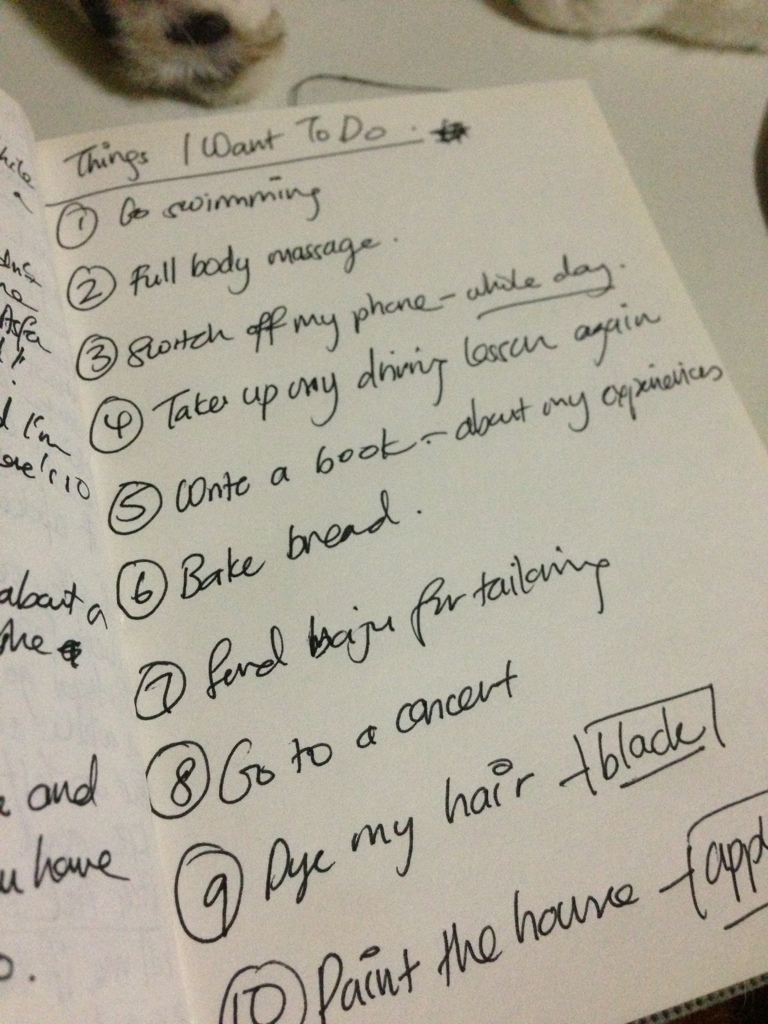 Things I Want To Do.
① Go swimming
② Full body massage.
③ Switch off my phone - whole day.
④ Take up my driving lesson again
⑤ Write a book - about my experiences
⑥ Bake bread.
⑦ Send baju for tailoring
⑧ Go to a concert
⑨ Dye my hair - black
⑩ Paint the house - app
d I'm
about a
and
have